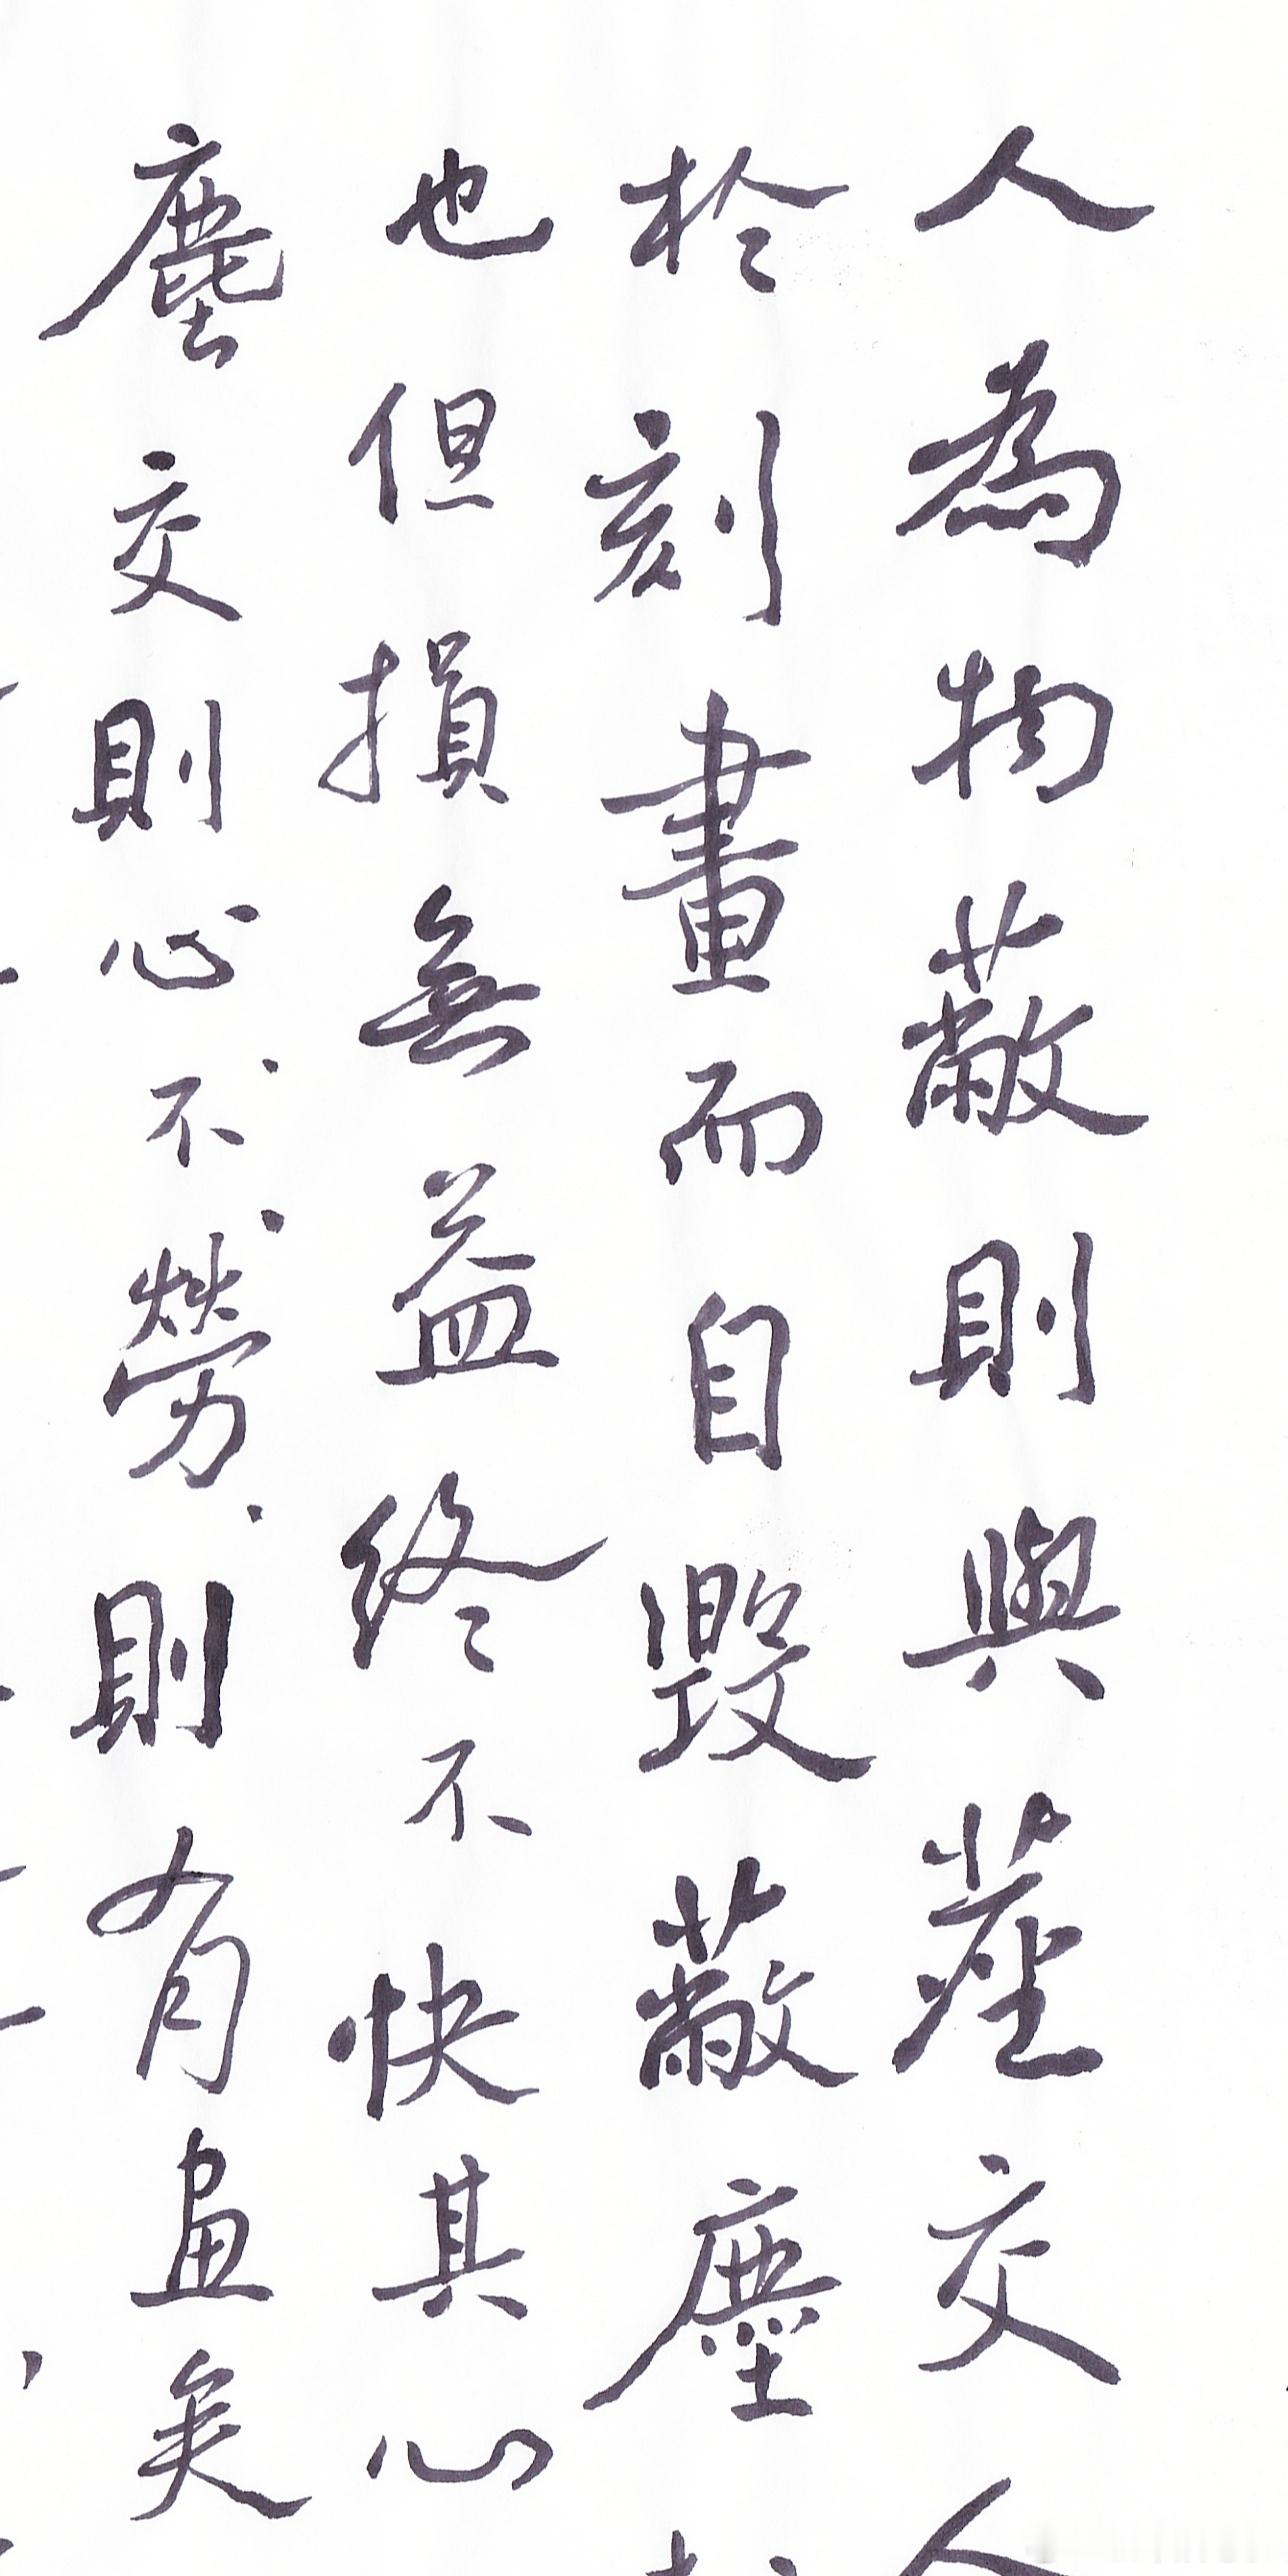 人為物蔽則與塵交人
於刻畫而自毀蔽塵
也但損無益終不快其心
塵交則心、不、勞、則有畫矣